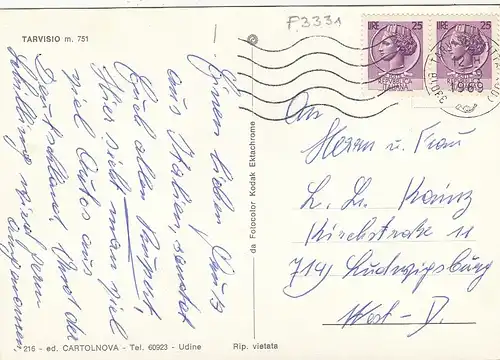 P.3331
TARVISIO m. 751
LIRE 25
LIRE 25
REPUBBLICA ITALIANA
REPUBBLICA ITALIANA
1969
Einen lieben Gruß
aus Italien, sendet
Euch allen
Hier sieht man viel
viel Autos aus
Deutschland. Und der
Schilling wird gern
angenommen.
An
Herrn u. Frau
L. L. Kainz
Kirchstraße 11
714 Ludwigsburg
West-D.
216 - ed. CARTOLNOVA - Tel. 60923 - Udine
Rip. vietata
da Fotocolor Kodak Ektachrome